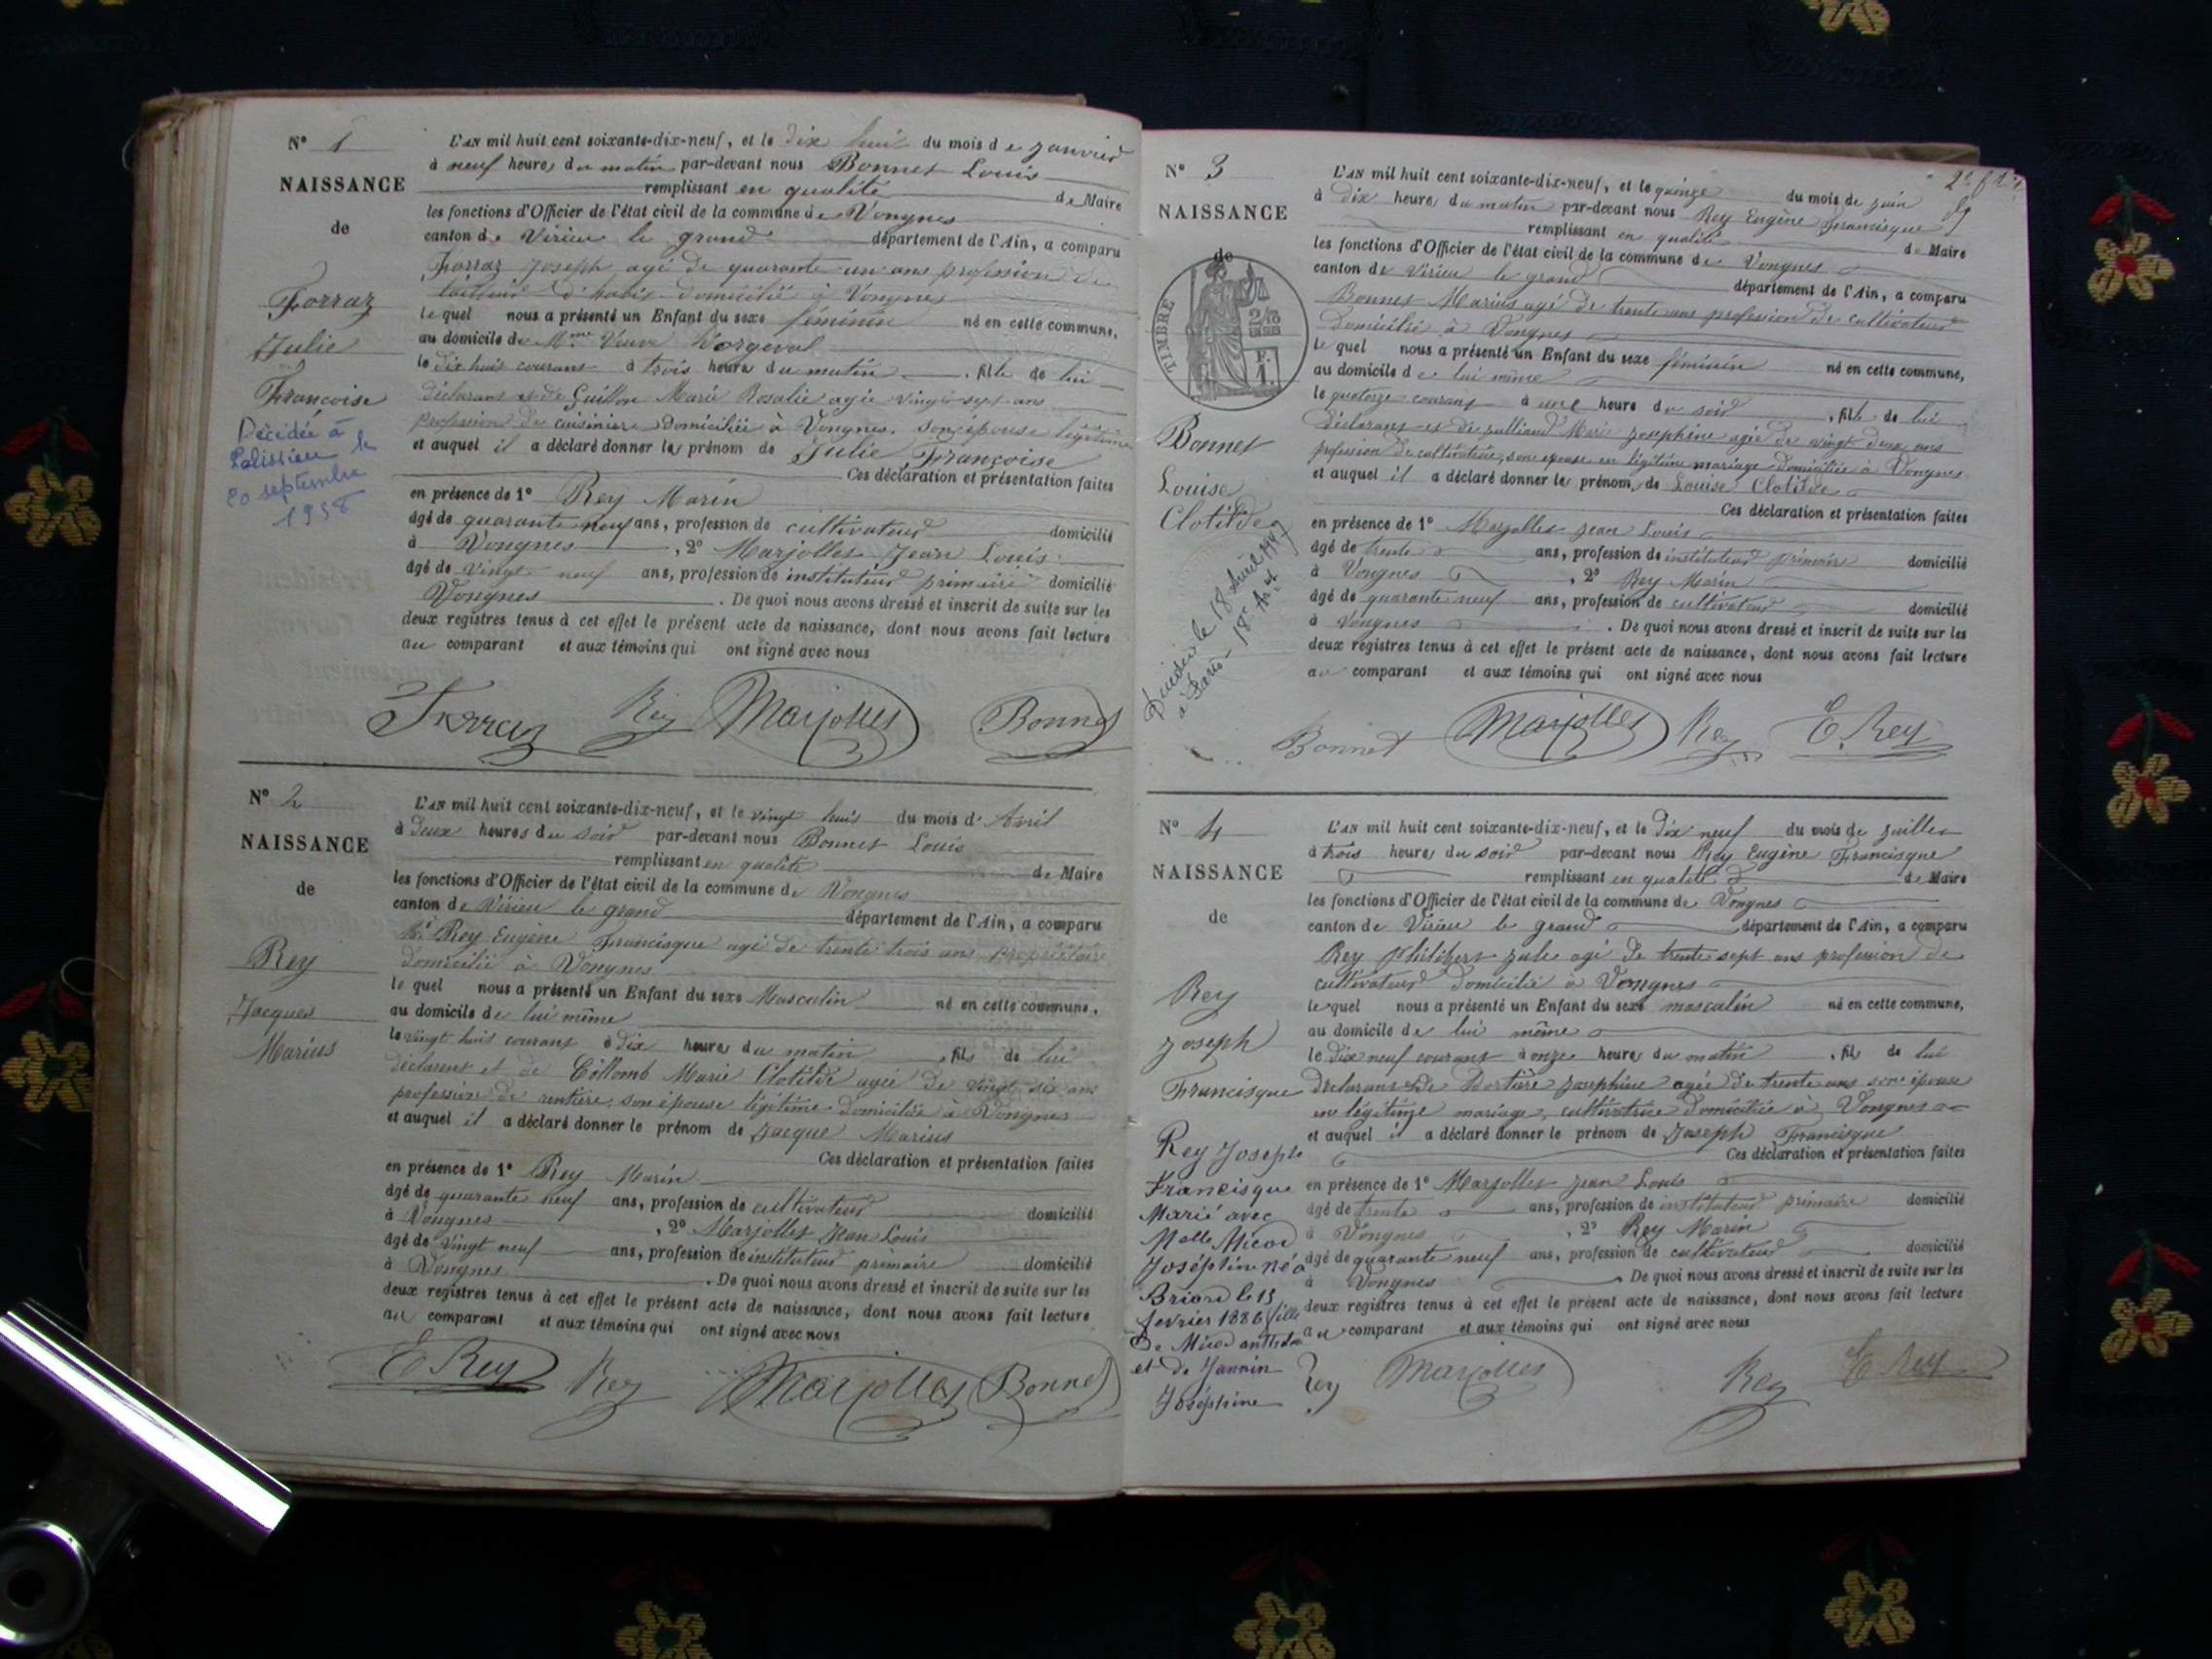 N° 1
NAISSANCE
de
Ferraz
Julie
Françoise
Décédée à
le
20 septembre
1958
L'AN mil huit cent soixante-dix-neuf, et le dix huit du mois de janvier
à neuf heures du matin par-devant nous Bonnet Louis
remplissant en qualité de Maire
les fonctions d'Officier de l'état civil de la commune de Vongnes
canton de Virieu le grand département de l'Ain, a comparu
Ferraz Joseph agé de quarante un ans profession de
tailleur d'habits domicilié à Vongnes
lequel nous a présenté un Enfant du sexe féminin né en cette commune,
au domicile de Mme Veuve
le dix huit courant à trois heures du matin , fille de lui
déclarant et de Guillon Marie Rosalie agée vingt sept ans
profession de cuisinière domiciliée à Vongnes, son épouse légitime
et auquel il a déclaré donner les prénom de Julie Françoise
Ces déclaration et présentation faites
en présence de 1° Rey Marin
âgé de quarante neuf ans, profession de cultivateur domicilié
à Vongnes , 2° Marjollet Jean Louis
âgé de vingt neuf ans, profession de instituteur primaire domicilié
Vongnes . De quoi nous avons dressé et inscrit de suite sur les
deux registres tenus à cet effet le présent acte de naissance, dont nous avons fait lecture
au comparant et aux témoins qui ont signé avec nous
Ferraz Rey Marjollet Bonnet
N° 2
NAISSANCE
de
Rey
Jacques
Marius
L'AN mil huit cent soixante-dix-neuf, et le vingt huit du mois d'Avril
à deux heures du soir par-devant nous Bonnet Louis
remplissant en qualité de Maire
les fonctions d'Officier de l'état civil de la commune de Vongnes
canton de Virieu le grand département de l'Ain, a comparu
Rey Eugène Francisque agé de trente trois ans propriétaire
domicilié à Vongnes
lequel nous a présenté un Enfant du sexe Masculin né en cette commune,
au domicile de lui même
le vingt huit courant à dix heures du matin , fils de lui
déclarant et de Collomb Marie Clotilde agée de vingt six ans
profession de rentière son épouse légitime domiciliée à Vongnes
et auquel il a déclaré donner le prénom de Jacque Marius
Ces déclaration et présentation faites
en présence de 1° Rey Marin
âgé de quarante neuf ans, profession de cultivateur domicilié
à Vongnes , 2° Marjollet Jean Louis
âgé de vingt neuf ans, profession de instituteur primaire domicilié
à Vongnes . De quoi nous avons dressé et inscrit de suite sur les
deux registres tenus à cet effet le présent acte de naissance, dont nous avons fait lecture
au comparant et aux témoins qui ont signé avec nous
E Rey Rey Marjollet Bonnet
N° 3
NAISSANCE
de
TIMBRE
Bonnet
Louise
Clotilde
Décédée le 18 Avril 1947
à Paris - 18e Arrt
L'AN mil huit cent soixante-dix-neuf, et le quinze du mois de juin
à dix heures du matin par-devant nous Rey Eugène Francisque
remplissant en qualité de Maire
les fonctions d'Officier de l'état civil de la commune de Vongnes
canton de Virieu le grand département de l'Ain, a comparu
Bonnet Marius agé de trente ans profession de cultivateur
domicilié à Vongnes
lequel nous a présenté un Enfant du sexe féminin né en cette commune,
au domicile de lui même
le quatorze courant à une heure du soir , fille de lui
déclarant et de Julliand Marie Josephine agée de vingt deux ans
profession de cultivatrice, son épouse en légitime mariage domiciliée à Vongnes
et auquel il a déclaré donner les prénom de Louise Clotilde
Ces déclaration et présentation faites
en présence de 1° Marjollet Jean Louis
âgé de trente ans, profession de instituteur primaire domicilié
à Vongnes , 2° Rey Marin
âgé de quarante neuf ans, profession de cultivateur domicilié
à Vongnes . De quoi nous avons dressé et inscrit de suite sur les
deux registres tenus à cet effet le présent acte de naissance, dont nous avons fait lecture
au comparant et aux témoins qui ont signé avec nous
Bonnet Marjollet Rey E. Rey
N° 4
NAISSANCE
de
Rey
Joseph
Francisque
Rey Joseph
Francisque
Marié avec
Melle Micod
Joséphine né à
Briord le 15
fevrier 1886 fille
de Micod
et de Jannin
Joséphine
L'AN mil huit cent soixante-dix-neuf, et le dix neuf du mois de juillet
à trois heures du soir par-devant nous Rey Eugène Francisque
remplissant en qualité de Maire
les fonctions d'Officier de l'état civil de la commune de Vongnes
canton de Virieu le grand département de l'Ain, a comparu
Rey Philibert Jule agé de trente sept ans profession de
cultivateur domicilié à Vongnes
lequel nous a présenté un Enfant du sexe masculin né en cette commune,
au domicile de lui même
le dix neuf courant à onze heures du matin , fils de lui
déclarant et de Josephine agée de trente ans son épouse
en légitime mariage, cultivatrice domiciliée à Vongnes
et auquel il a déclaré donner le prénom de Joseph Francisque
Ces déclaration et présentation faites
en présence de 1° Marjollet Jean Louis
âgé de trente ans, profession de instituteur primaire domicilié
à Vongnes , 2° Rey Marin
âgé de quarante neuf ans, profession de cultivateur domicilié
à Vongnes . De quoi nous avons dressé et inscrit de suite sur les
deux registres tenus à cet effet le présent acte de naissance, dont nous avons fait lecture
au comparant et aux témoins qui ont signé avec nous
Rey Marjollet Rey E Rey